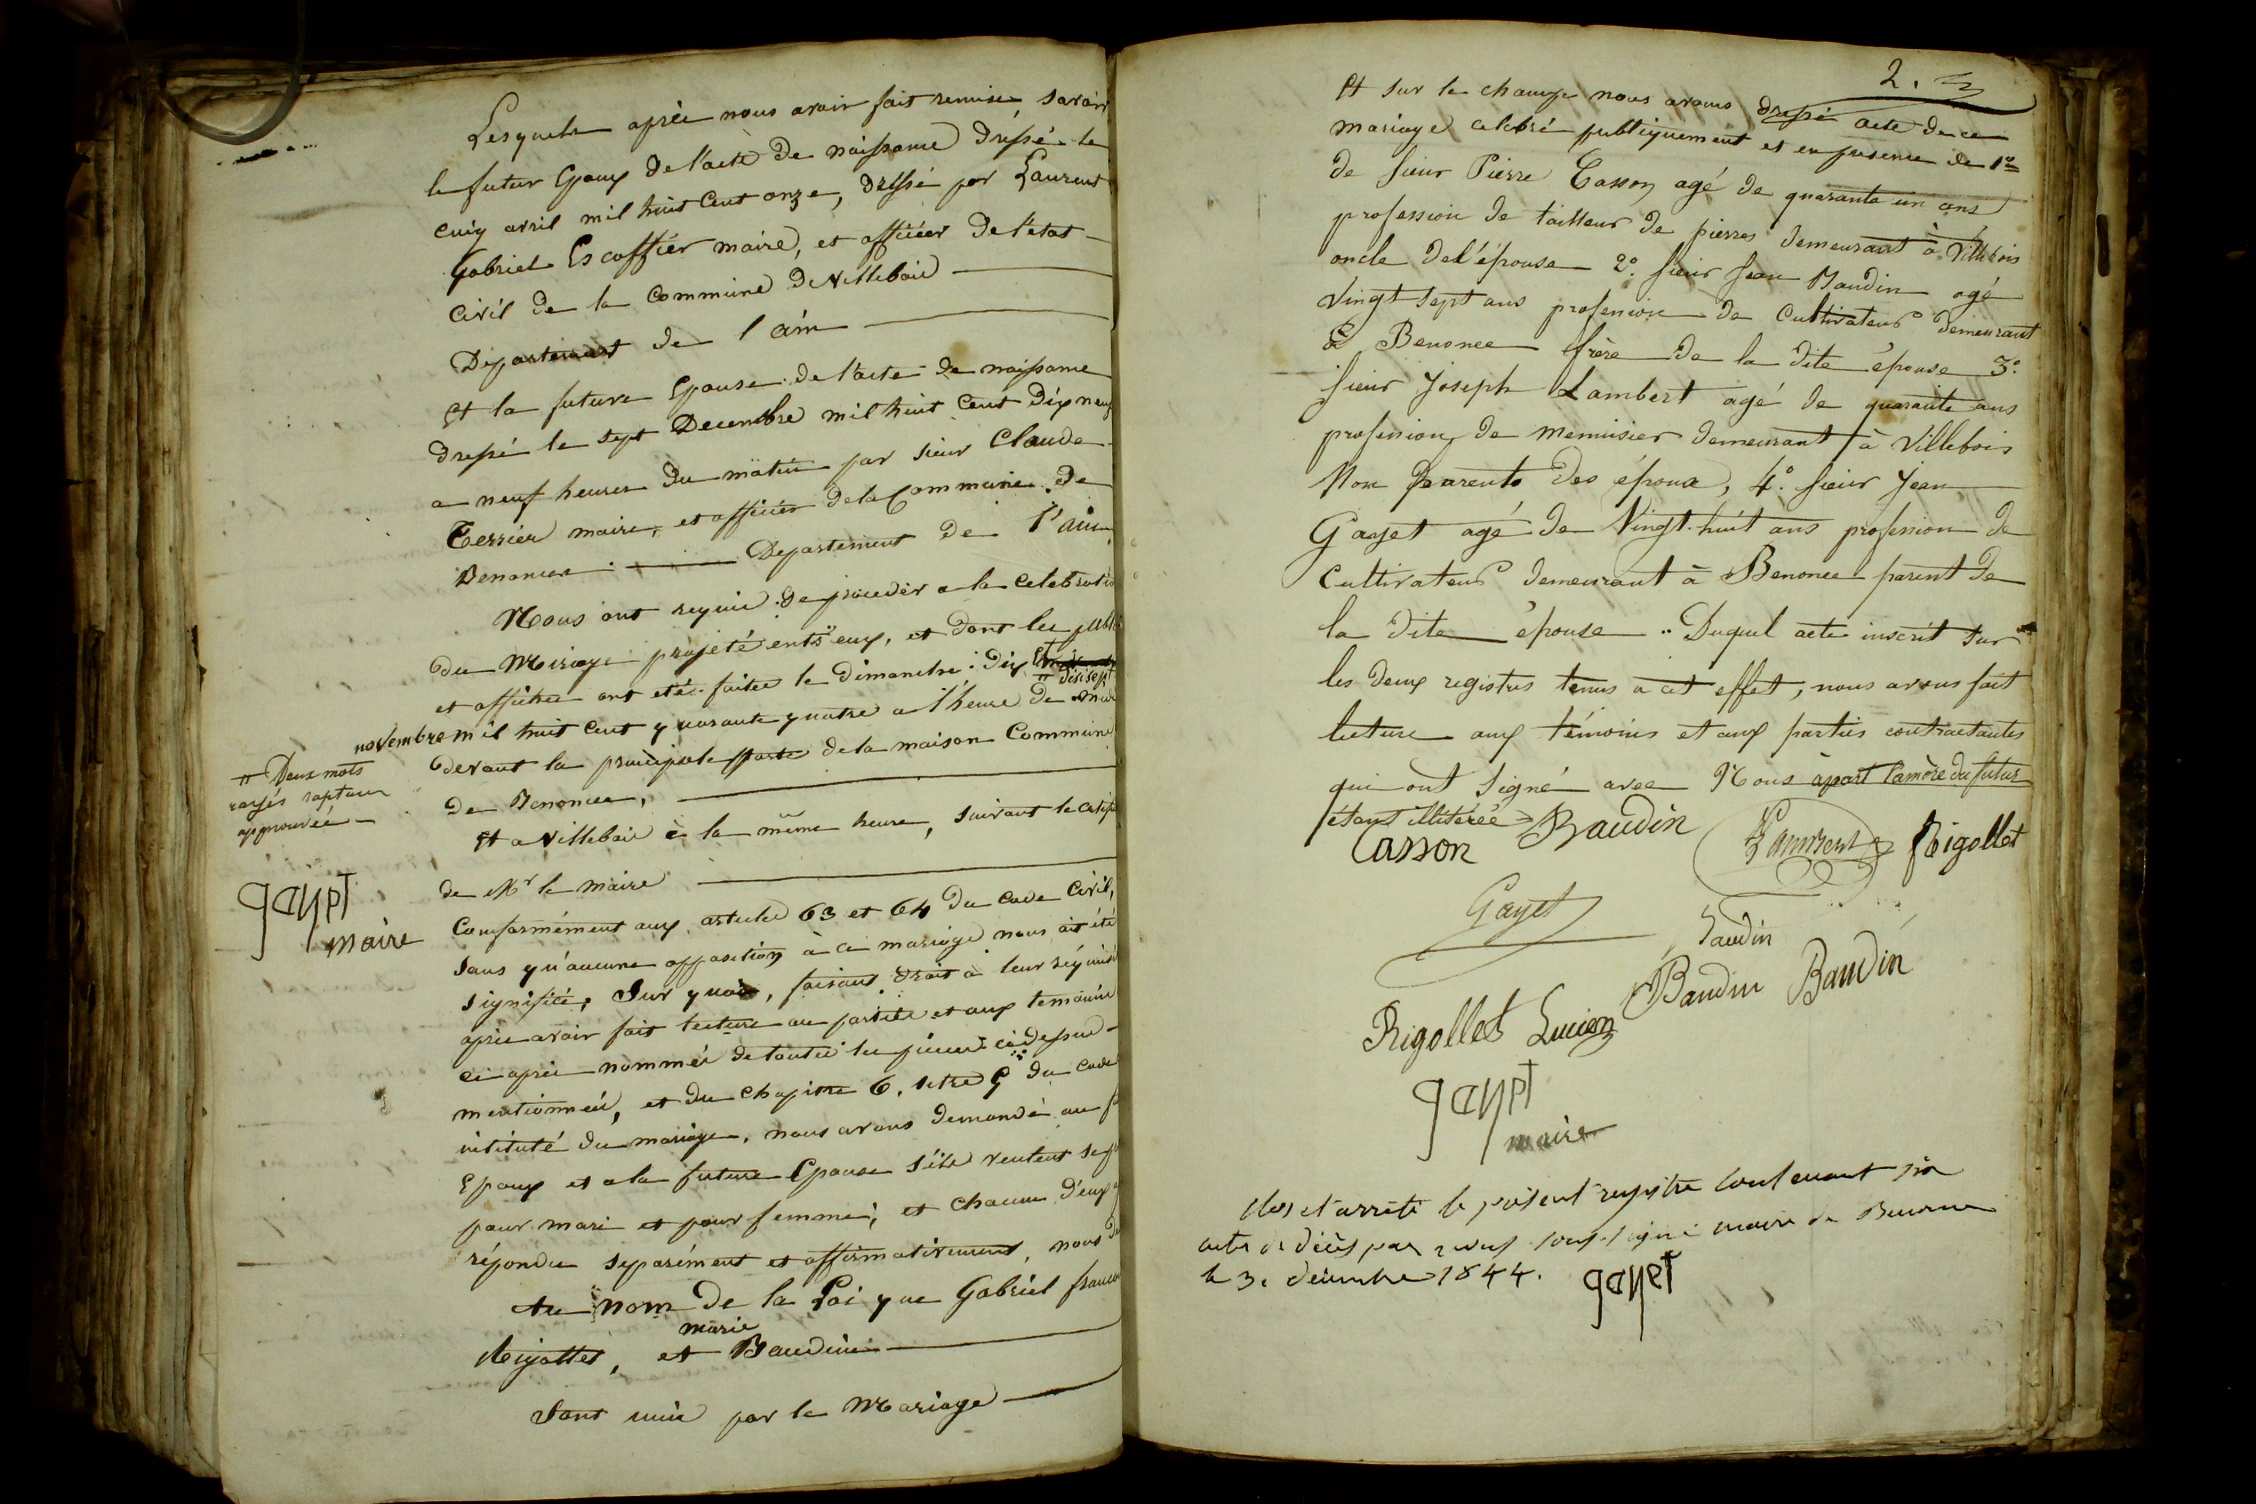 Lesquels après nous avoir fait remise savoir
le futur Epoux de l'acte de naissance dréssé le
cinq avril mil huit cent onze, dressé par Laurent
Gabriel Escoffier maire, et officier de l'état
civil de la Commune de Villebois
Département de l'ain
Et la future Epouse de l'acte de naissance
dressé le sept Decembre mil huit cent dix neuf
a neuf heures du matin par sieur Claude
Terrier maire, et officier de la Commune de
Benonces Departement de l'ain,
Nous ont requis de proceder a la celebratio
du Mariage projeté entr'eux, et dont les publi
et affiches ont eté faites le dimanche: dix et
# dixsept
novembre mil huit cent quarante quatre a l'heure de midi
devant la principale porte de la maison Commune
de Benonces,
# Deux mots
rayés
approuvés
Et a Villebois à la même heure, suivant le certifi
de Mr le maire
Gayet
maire
Conformément aux articles 63 et 64 du code Civil,
sans qu'aucune opposition à ce mariage nous ait été
signifiée; Sur quoi, faisant droit à leur réquisi
après avoir fait lecture au parties et aux temoins
ci après nommés de toutes les pièces ci dessus
mentionnées, et du chapitre 6. titre 5 du code
intitulé du mariage, nous avons demandé au fu
Epoux et a la future Epouse s'ils veulent se p
pour mari et pour femme; et chacun d'eux a
répondu separément et affirmativement, nous d
Au nom de la Loi que Gabriel francois
marie
Rigollet, et Baudin
Sont unis par le Mariage
2.
Et sur le champ nous avons dressé acte de ce
mariage célébré publiquement et en presence de 1º
de sieur Pierre Casson agé de quarante un ans
profession de tailleur de pierres demeurant à Villebois
oncle de l'épouse 2º. sieur Jean Baudin agé
Vingt sept ans profession de Cultivateur demeurant
à Benonce frère de la dite épouse 3º.
sieur Joseph Lambert agé de quarante ans
profession de menuisier demeurant à Villebois
Non parents des époux, 4º. sieur Jean
Gayet agé de Vingt-huit ans profession de
Cultivateur demeurant à Benonce parent de
la dite épouse .. Duquel acte inscrit sur
les deux registres tenus à cet effet, nous avons fait
lecture aux témoins et aux parties contractantes
qui ont signé avec Nous àpart la mère du futur
étant illitérée
Casson Baudin Lambert Rigollet
Gayet
Baudin
Baudin Baudin
Rigollet Lucien
Gayet
maire
Clos et arrêté le présent registre contenant six
actes de décès par nous soussigné maire de Benonce
le 31 décembre 1844. Gayet